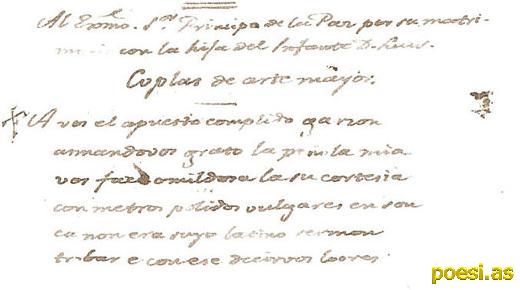 Al Exmo. Sor. Principe de la Paz por su matri-
monio con la hija del Infante D. Luis.
Coplas de arte mayor.
A vos el apuesto complido garzon
asmandovos grato la peñola mia
vos faz omildosa la su cortesia
con metros polidos vulgares en son
ca non era suyo latino sermon
trobar e con ese decirvos loores
poesi.as